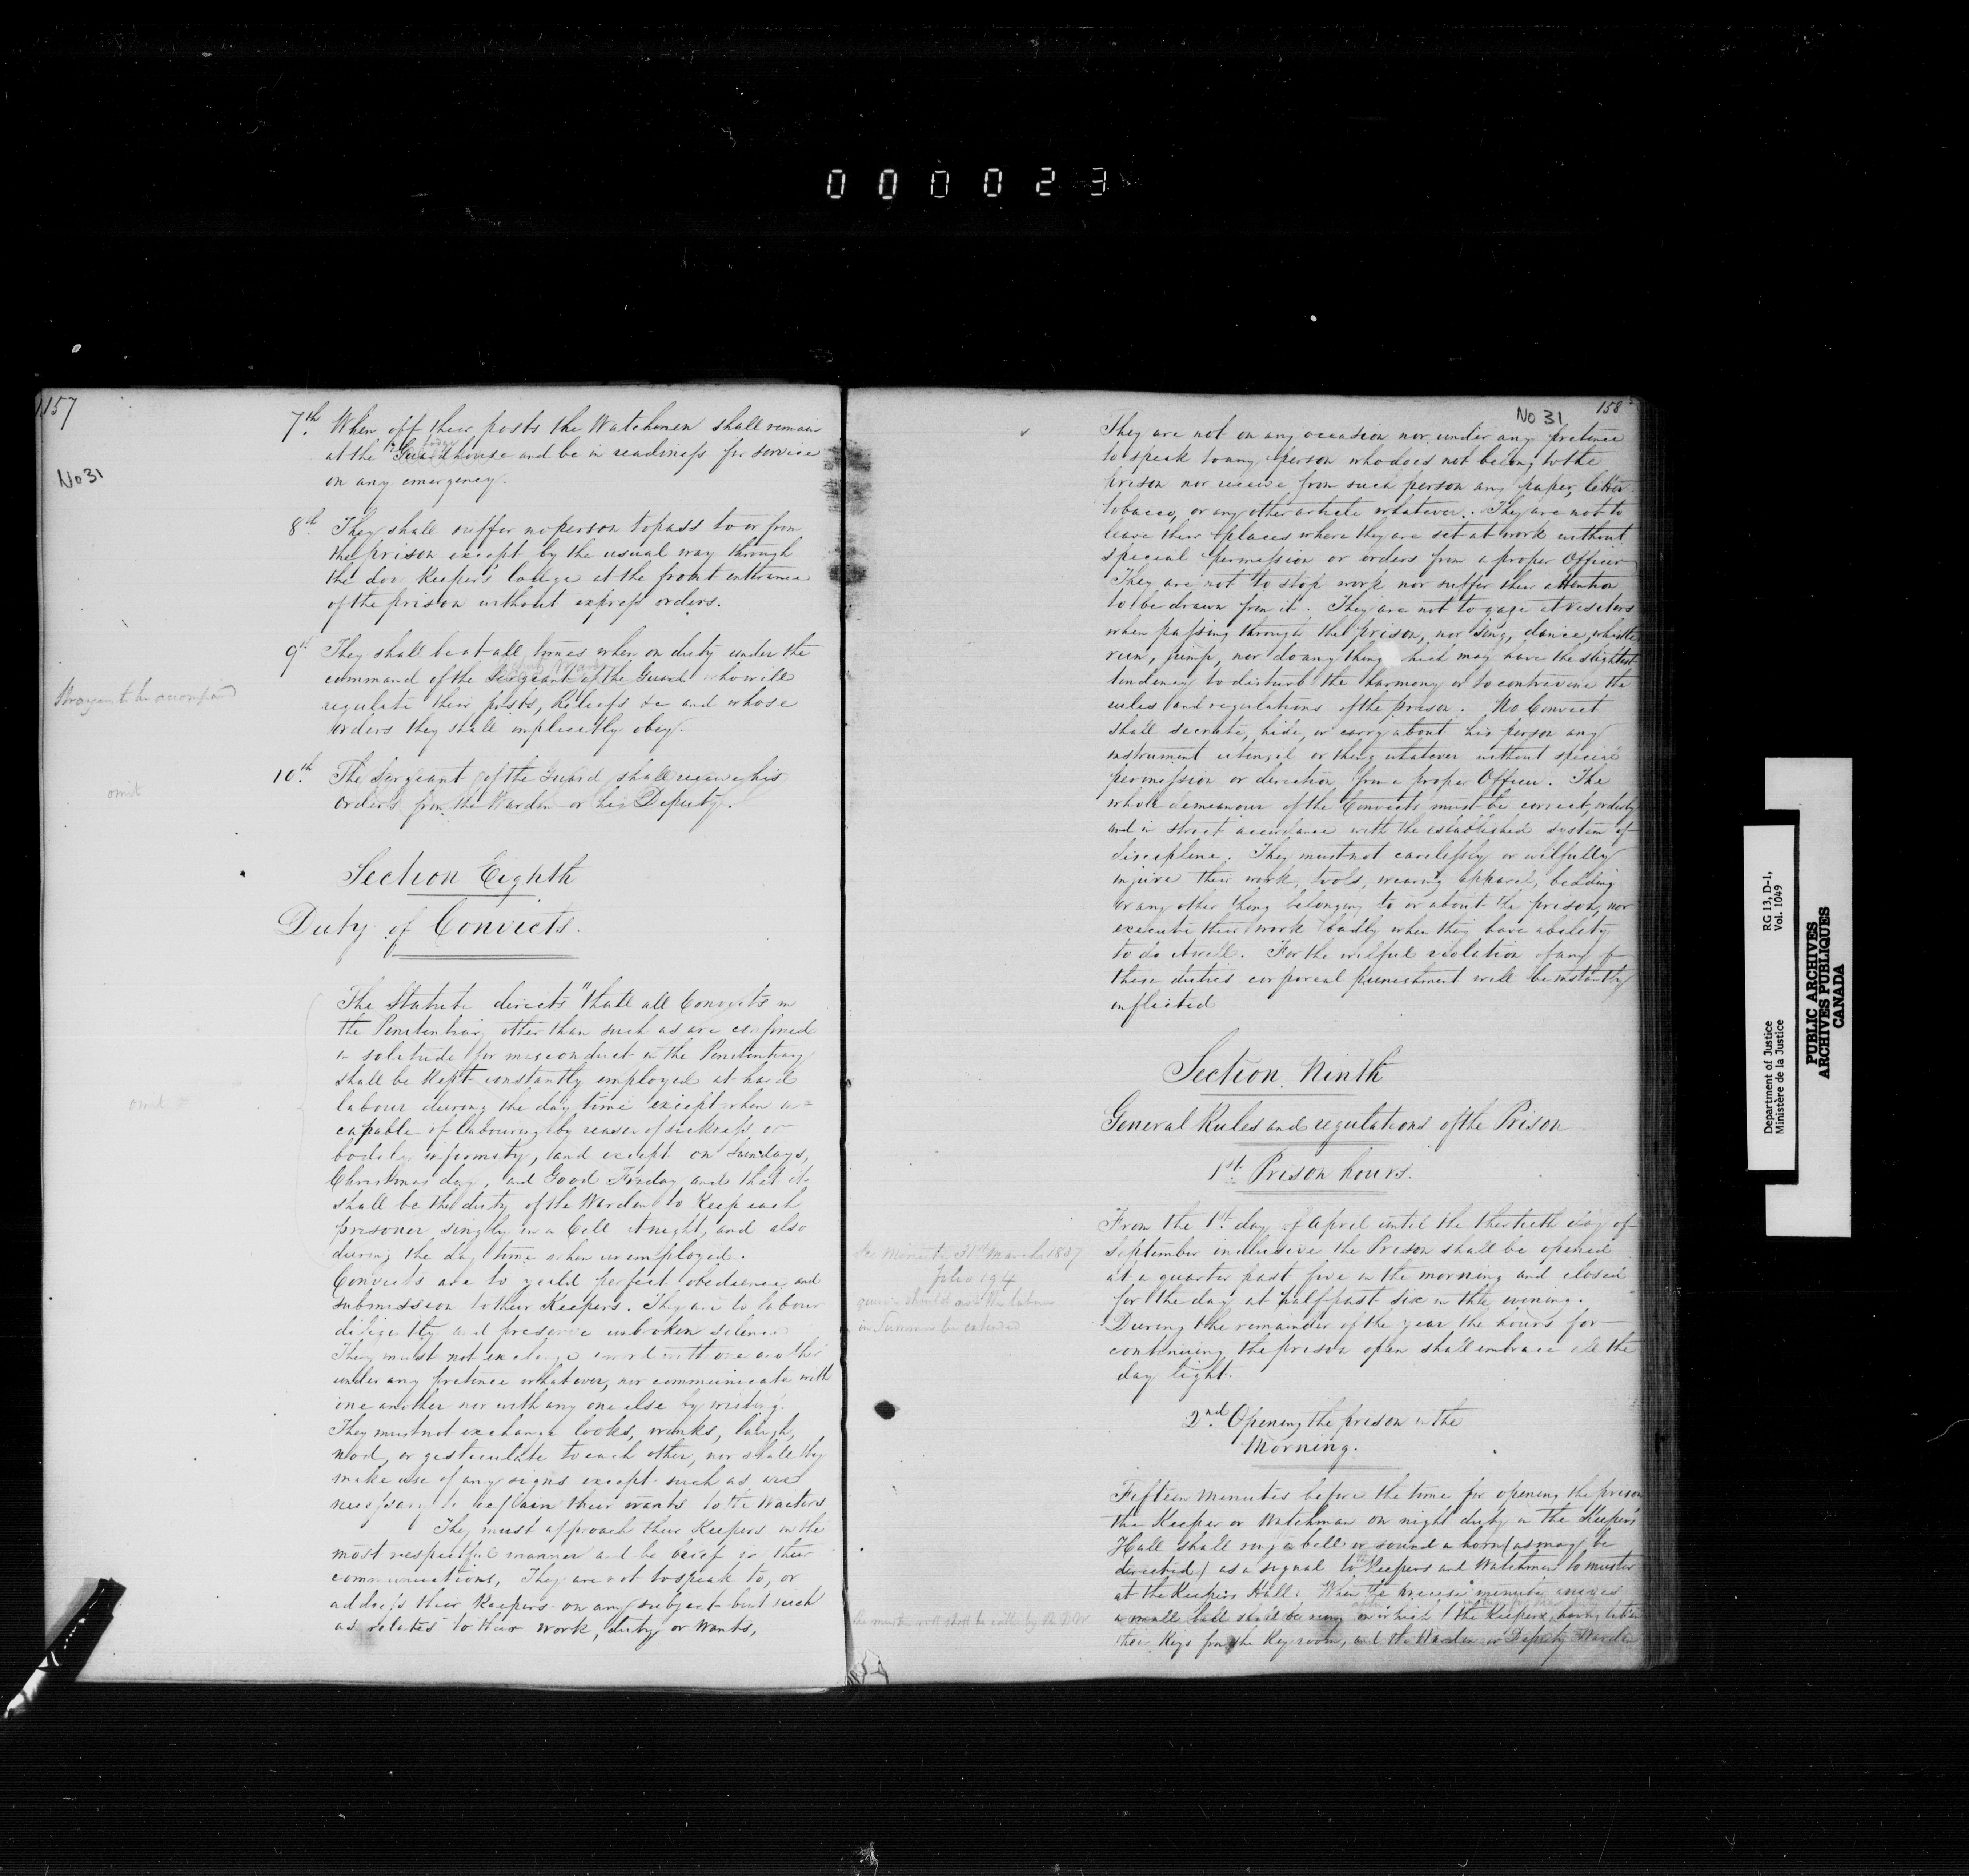 000023
157
No 31
7th. When off their posts the Watchmen shall remain
at the Guard house and be in readiness for service
on any emergency.
8th. They shall suffer no person to pass to or from
the prison except by the usual way through
the door Keepers lodge at the front entrance
of the prison without express orders.
9th They shall be at all times when on duty under the
command of the Sergeant of the Guard who will
regulate their posts, Reliefs &c and whose
orders they shall implicitly obey.
omit
10.th The Sergeant of the Guard shall receive his
orders from the Warden or his Deputy.
Section Eighth
Duty of Convicts.
The Statute directs "that all Convicts in
the Penitentiary other than such as are confined
in solitude for misconduct in the Penitentiary
shall be Kept constantly employed at hard
omit
labour during the day time except when in=
capable of labouring by reason of sickness or
bodily infirmity, and except on Sundays,
Christmas day, and Good Friday and that it
shall be the duty of the Warden to Keep each
prisoner singly in a Cell at night, and also
during the day time when unemployed.
Convicts are to yield perfect obedience and
submission to their Keepers. They are to labour
diligently and preserve unbroken silence
They must not exchange a word with one another
under any pretence whatever, nor communicate with
one another nor with any one else by writing.
They must not exchange looks, winks, laugh,
nod, or gesticulate to each other, nor shall they
make use of any signs except such as are
necessary to explain their wants to the Waiters
They must approach their Keepers in the
most respectful manner and be brief in their
communications, They are not to speak to, or
address their Keepers on any subject but such
as relates to their work, duty or wants,
No 31
158
They are not on any occasion nor under any pretence
to speak to any person who does not belong to the
prison nor receive from such person any paper, letter
tobacco, or any other article whatever. They are not to
leave their places where they are set at work without
special permission or orders from a proper Officer
They are not to stop work nor suffer their attention
to be drawn from it. They are not to gaze at visitors
when passing through the prison, nor sing, dance, whistle
run, jump, nor do any thing which may have the slightest
tendency to disturb the harmony or to contravene the
rules and regulations of the prison. No Convict
shall secrete, hide, or carry about his person any
instrument utensil or thing whatever without special
permission or direction from a proper Officer. The
whole demeanour of the Convicts must be correct, orderly
and in strict accordance with the established system of
discipline. They must not carelessly or wilfully
injure their work, tools, wearing apparel, bedding
or any other thing belonging to or about the prison, nor
execute their work badly when they have ability
to do it well. For the wilful violation of any of
these duties corporeal punishment will be instantly
inflicted
Section Ninth
General Rules and regulations of the Prison
1st. Prison hours.
From the 1st. day of April until the thirtieth day of
September inclusive the Prison shall be opened
at a quarter past five in the morning and closed
for the day at half past six in the evening.
During the remainder of the year the hours for
continuing the prison open shall embrace all the
day light.
See Minute 31st March 1837
folio 194
should not the labour
in Summer be
2nd. Opening the prison in the
Morning.
Fifteen minutes before the time for opening the prison
the Keeper or Watchman on night duty in the Keepers'
Hall shall ring a bell or sound a horn (as may be
directed) as a signal to the Keepers and Watchmen to muster
at the Keepers Hall. When the precise minute arrives
a small bell shall be rung on which the Keepers, having taken
their Keys from the Key room, and the Warden or Deputy Warden
the muster roll shall be called by the D W
Department of Justice
Ministère de la Justice
RG 13, D-1,
Vol. 1049
PUBLIC ARCHIVES
ARCHIVES PUBLIQUES
CANADA